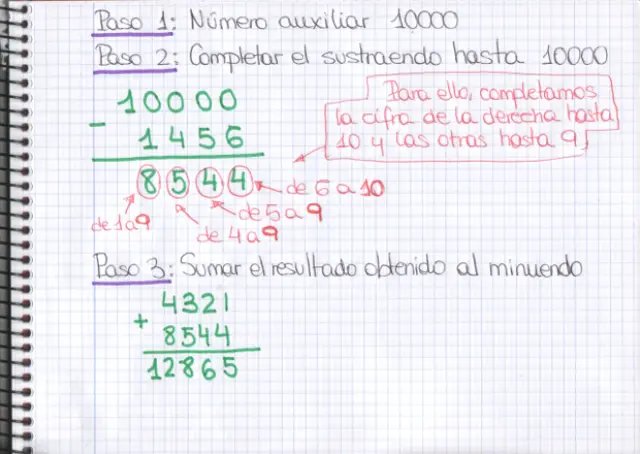 Paso 1: Número auxiliar 10000
Paso 2: Completar el sustraendo hasta 10000
Para ello, completamos
la cifra de la derecha hasta
10 y las otras hasta 9
10000
- 1456
8544
de 6 a 10
de 5 a 9
de 4 a 9
de 1 a 9
Paso 3: Sumar el resultado obtenido al minuendo
4321
+ 8544
12865